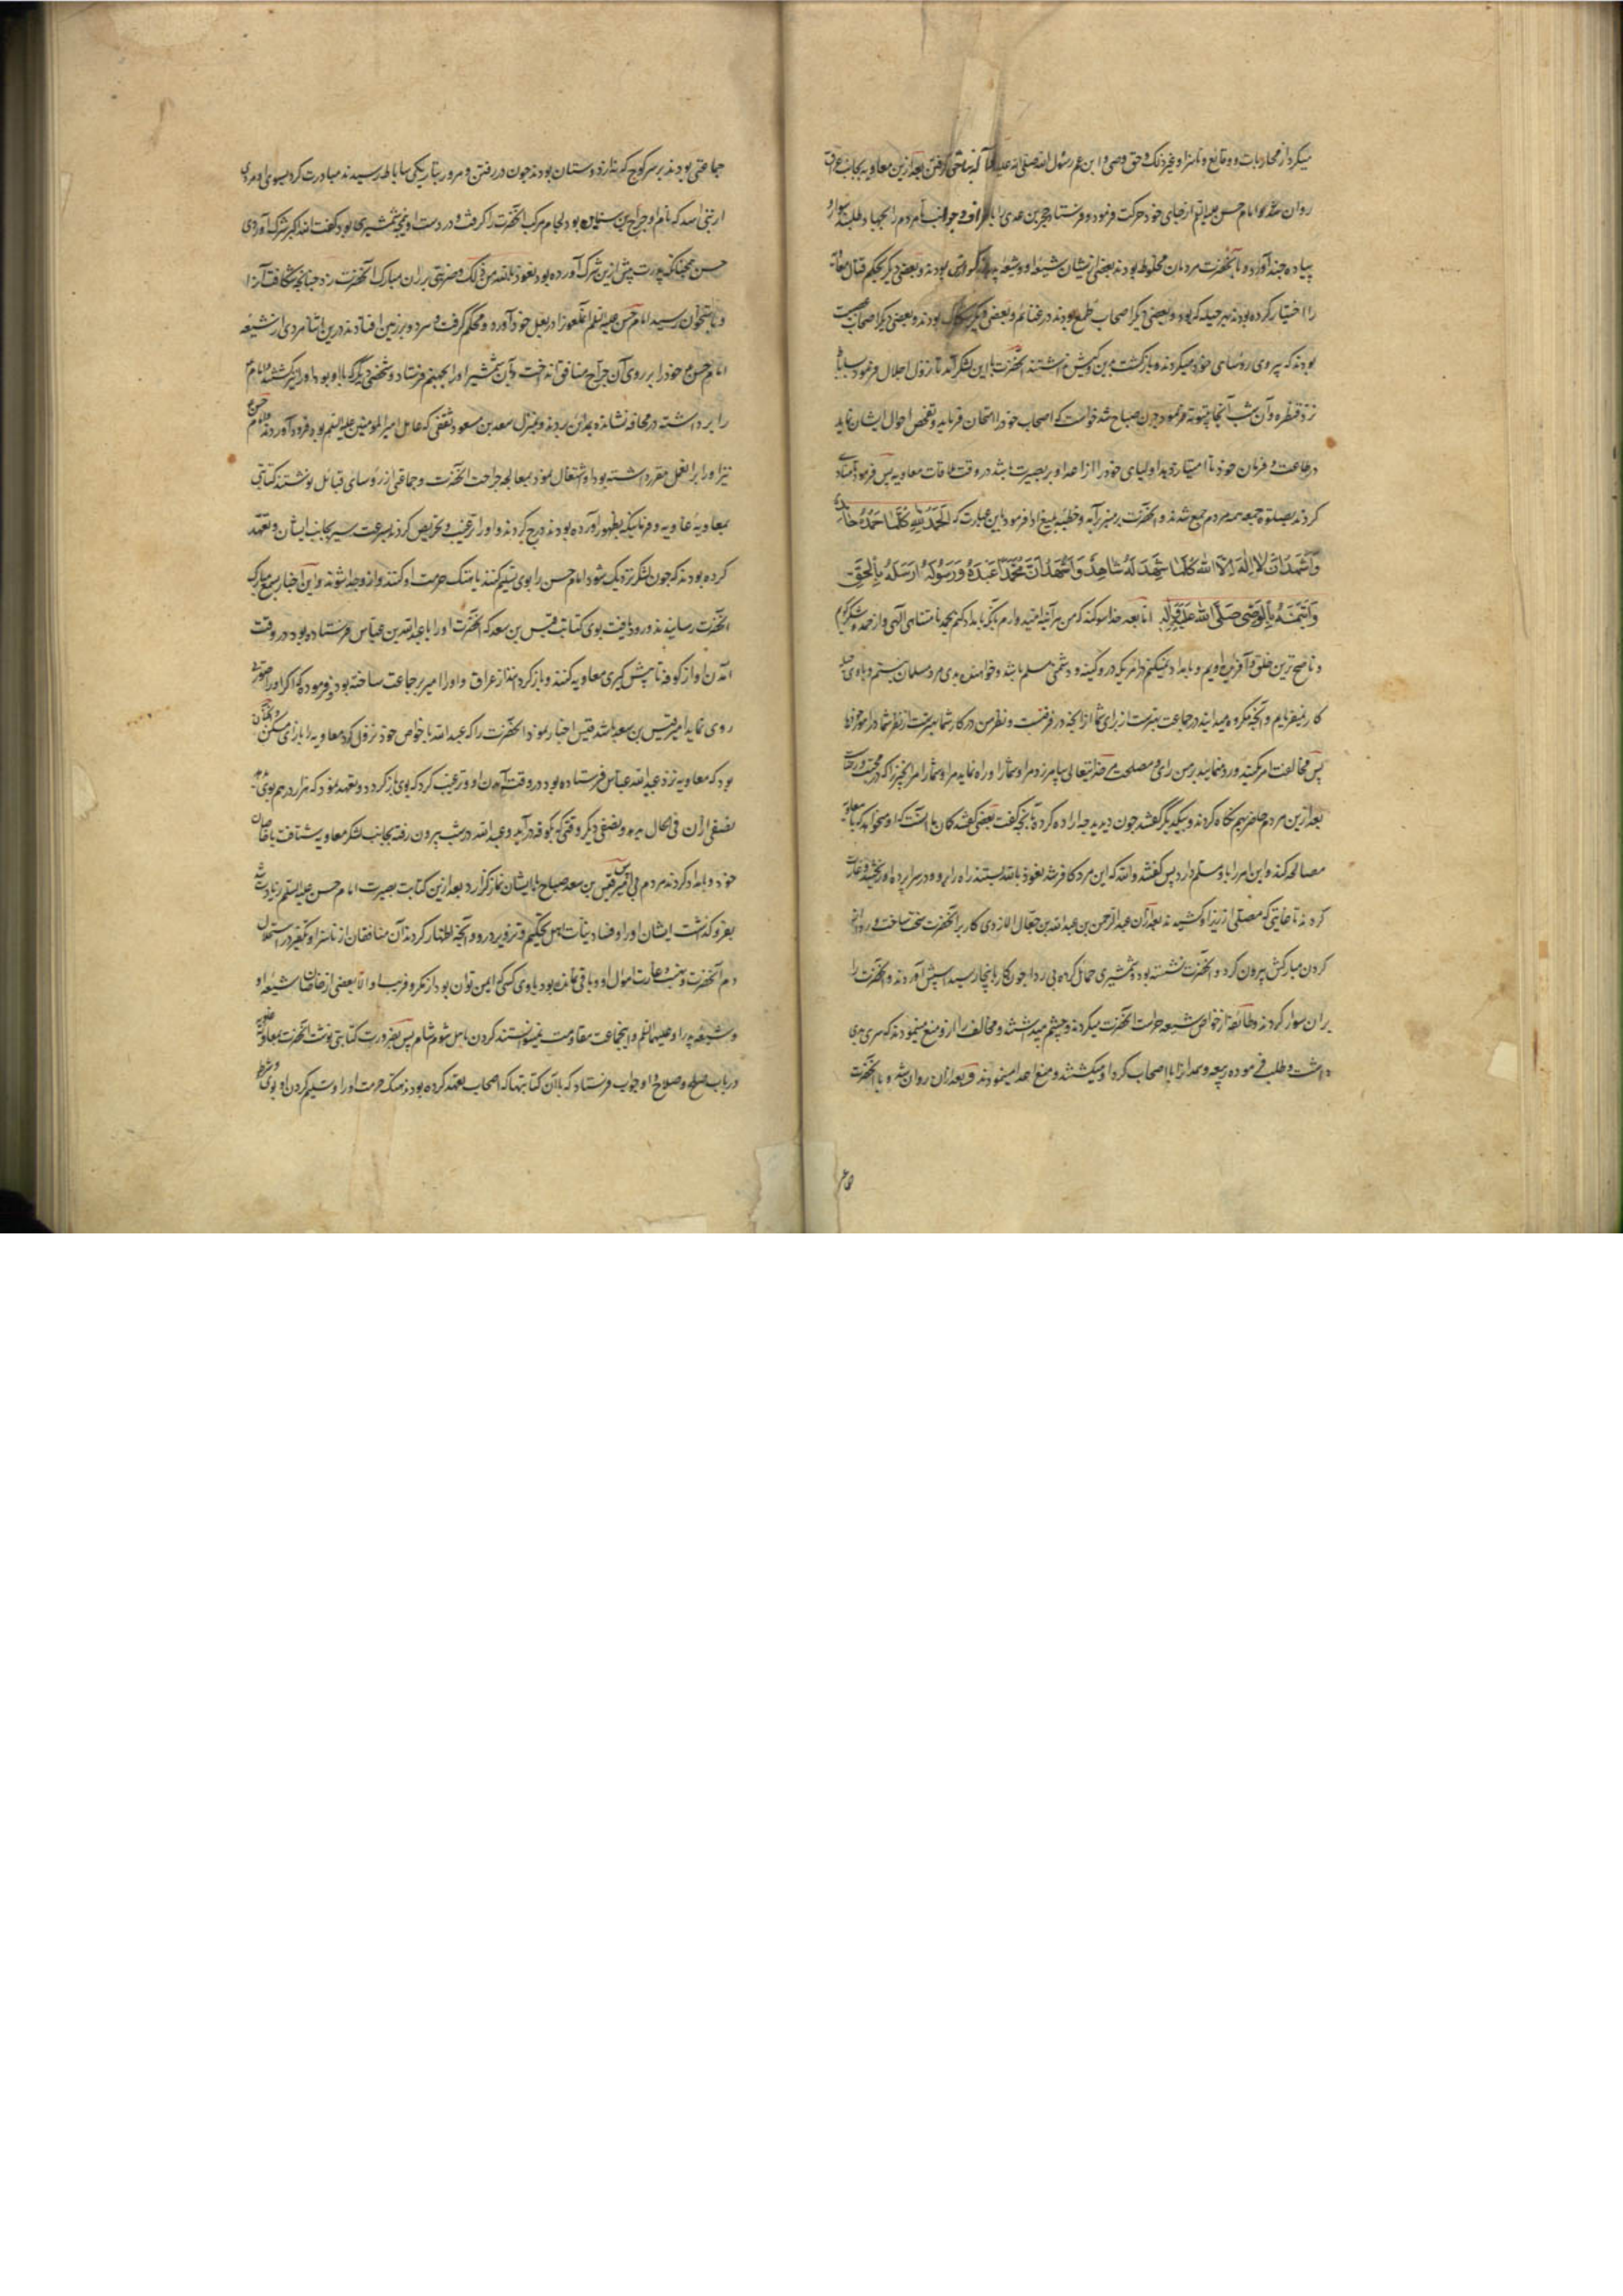 میکرد از محاربات و وقایع و ناسزا و غیر ذلک و حق وصی و ابن عم رسول الله صلی الله علیه بعد ازین معاویه بجانب عراق
روان شد و امام حسن علیه السلم از جای خود حرکت فرمود و فرستاد حجر بن عدی را باطراف و جوانب تا مردم را بجهاد طلبد سوار و
پیاده چند آورد و با آنحضرت مردمان مخلوط بودند بعضی ازیشان شیعه او و شیعه پدر بزرگوارش بودند و بعضی دیگر بحکم قتال معاویه
را اختیار کرده بودند بهر حیله که بود و بعضی دیگر اصحاب طمع بودند در غنایم و بعضی دیگر شکاک بودند و بعضی دیگر اصحاب عصبیت
بودند که پیروی رؤسای خود میکردند و بازگشت بدین و کیش نداشتند آنحضرت با این لشکر آمد تا نزول اجلال فرمود بساباط
نزد قنطره و آن شب آنجا بیتوته فرمود چون صباح شد خواست که اصحاب خود را امتحان فرماید و تفحص احوال ایشان نماید
در طاعت و فرمان خود تا امتیاز دهد اولیای خود را از اعدا و بر بصیرت باشد در وقت ملاقات معاویه پس فرمود تا ندا
کردند بصلوة جمعه همه مردم جمع شدند و آنحضرت بر منبر برآمد و خطبه بلیغ ادا فرمود باین عبارت که الحمد لله کلما حمده حامد
و اشهد ان لا اله الا الله کلما شهد له شاهد و اشهد ان محمدا عبده و رسوله ارسله بالحق
و ائتمنه بالوحی صلی الله علیه و آله اما بعد بخدا سوگند که من هر آینه امید وارم بآنکه بامداد کنم بحمد نامتناهی الهی و از حمد و شکر گویم
و ناصح ترین خلق و آفریده اویم و بامداد نمیکنم در مریکه در و کینه و دشمنی مسلم باشد و خواهنده بدی مرد مسلمان نیستم و با وی حیله
کار نفرمایم و آنچه مکروه میدانید در جماعت بهترست از برای شما از آنچه در فرقتست و نظر من در کار شما بهترست از نظر شما در امور خود
پس مخالفت امر من مکنید و رد منمایید بر من رای و مصلحت من خدایتعالی بیامرزد مرا و شما را و راه نماید مرا و شما را مر آنچیز را که در محبت و رضاست
بعد ازین مردم حاضر بهم نگاه کردند و بیکدیگر گفتند چون دیدید چه اراده کرده بآنچه گفت بعضی گفتند گمان ما آنست که او میخواهد که با معاویه
مصالحه کند و این امر را باو مسلم دارد پس گفتند و الله که این مرد کافر شد نعوذ بالله بستند راه را برو و در سراپرده او ریختند و غارت
کردند تا غایتی که مصلی از زیر او کشیدند بعد از آن عبد الرحمن بن عبد الله بن جعال الازدی کار بر آنحضرت سخت ساخت و ردا از
کردن مبارکش بیرون کرد و آنحضرت نشسته بود و شمشیری حمایل کرده بی ردا چون کار باینجا رسید اسپش آوردند و آنحضرت را
بر آن سوار کردند و طائفه از خواص شیعه حراست آنحضرت میکردند و چشم میداشتند و مخالف را ازو منع مینمودند که سری بدی
داشت و طلب فرموده ربیعه و همدان را با اصحاب گرد او میکشتند و منع اعدا مینمودند و بعد از آن روان شد و با آنحضرت
جماعتی بودند بر سر کوچ که نه از دوستان بودند چون در رفتن و مرور بتاریکی ساباط رسیدند مبادرت کرد بسوی او مردی
از بنی اسد که نام او جراح بن سنان بود لجام مرکب آنحضرت را گرفت و در دست او نیمچه شمشیری بود گفت الله اکبر شرک آوردی
حسن همچنانکه پدرت پیش ازین شرک آورده بود نعوذ بالله من ذلک و ضربتی بر ران مبارک آنحضرت زد چنانچه شکافت آنرا
و تا استخوان رسید امام حسن علیه السلم آن ملعون را در بغل خود آورد و محکم گرفت و هر دو بر زمین افتادند درین اثنا مردی از شیعه
امام حسن ع خود را بر روی آن جراح منافق انداخت و بآن شمشیر او را بجهنم فرستاد و شخصی دیگر که با او بود او را نیز کشتند و امام
را برداشته در محافه نشانده بمداین بردند و بمنزل سعد بن مسعود ثقفی که عامل امیر المومنین علیه السلم بود فرود آوردند و امام حسن
نیز او را بر آن عمل مقرر داشته بود او اشتغال نمود بمعالجه جراحت آنحضرت و جماعتی از رؤسای قبائل نوشتند کتابتی
بمعاویه غاویه و فرمانبری بظهور آورده بودند درج کردند و او را ترغیب و تحریص کردند بسرعت سیر بجانب ایشان و تعهد
کرده بودند که چون لشکر نزدیک شود امام حسن را بوی تسلیم کنند یا هتک حرمت او کنند و ازو جدا شوند و این اخبار بسمع مبارک
آنحضرت رسانیدند و رود یافت بوی کتابت قیس بن سعد که آنحضرت او را با عبد الله بن عباس فرستاده بود در وقت
آمدن او از کوفه تا پیش گیری معاویه کنند و باز گردانند از عراق و او را امیر بر جماعت ساخته بود و فرموده که اگر او را صورتی
روی نماید امیر قیس بن سعد باشد قیس اخبار نمود آنحضرت را که عبد الله با خواص خود نزول کرد معاویه را بازای مسکن و آنچنان
بود که معاویه نزد عبد الله عباس فرستاده بود در وقت آمدن او و ترغیب کرد که بوی باز گردد و تعهد نمود که هزار درهم بوی
نصفی از آن فی الحال بدهد و نصفی دیگر وقتی که بکوفه درآید و عبد الله در شب بیرون رفته بجانب لشکر معاویه شتافت با خاصان
خود و بامداد کردند مردم بی امیر پس قیس بن سعد صباح با ایشان نماز گزارد بعد ازین کتابت بصیرت امام حسن علیه السلم زیادت شد
بفرو گذاشت ایشان او را و فساد نیات اهل تحکیم و تزویر درو و آنچه اظهار کردند آن منافقان از ناسزا و تکفیر در استحلال
دم آنحضرت و نهب و غارت اموال او و باقی نمانده بود با وی کسی که ایمن توان بود از مکر و فریب او الا بعضی از خاصان شیعه او
و شیعه پدر او علیهما السلم و اینجماعت مقاومت نمیتوانستند کردن با سر شوم شام پس بضرورت کتابتی نوشت آنحضرت بمعاویه
در باب صلح و صلاح و او جواب فرستاد که با آن کتابتها که اصحاب تعهد کرده بودند هتک حرمت او را و تسلیم کردن او بوی